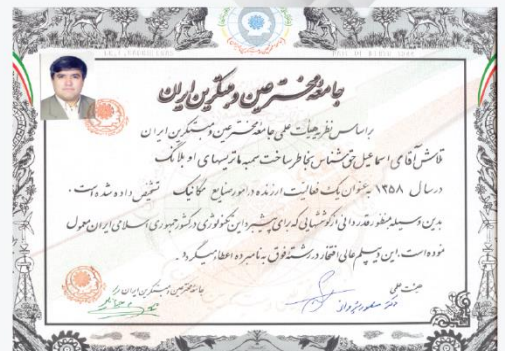 جامعه مخترعین و مبتکرین ایران
براساس نظریه هیأت علمی جامعه مخترعین و مبتکرین ایران
تلاش آقای اسماعیل حق شناس بخاطر ساخت سمبه ماتریسهای او بلانک
در سال ۱۳۵۸ بعنوان یک فعالیت ارزنده در امور صنایع مکانیک تشخیص داده شده است.
بدین وسیله بمنظور قدردانی از کوششهایی که برای پیشبرد این تکنولوژی در کشور جمهوری اسلامی ایران معمول
نموده است، این دیپلم عالی افتخار در رشته فوق به نامبرده اعطاء میگردد.
هیئت علمی
دکتر
جامعه مخترعین و مبتکرین ایران